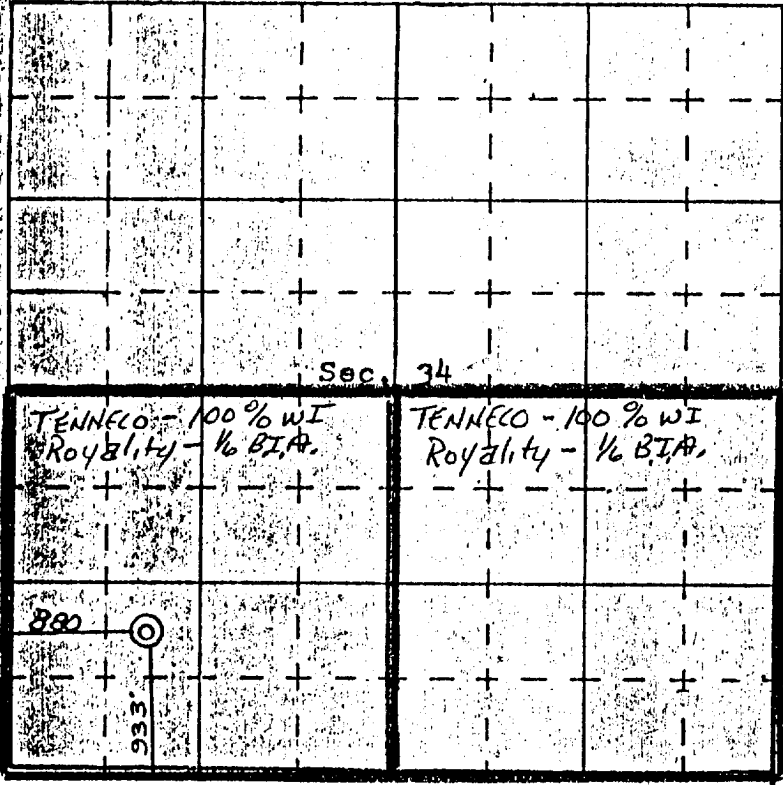 Sec. 34
TENNECO - 100% WI
Royality - 1/6 B.I.A.
TENNECO - 100% WI
Royality - 1/6 B.I.A.
880
933'